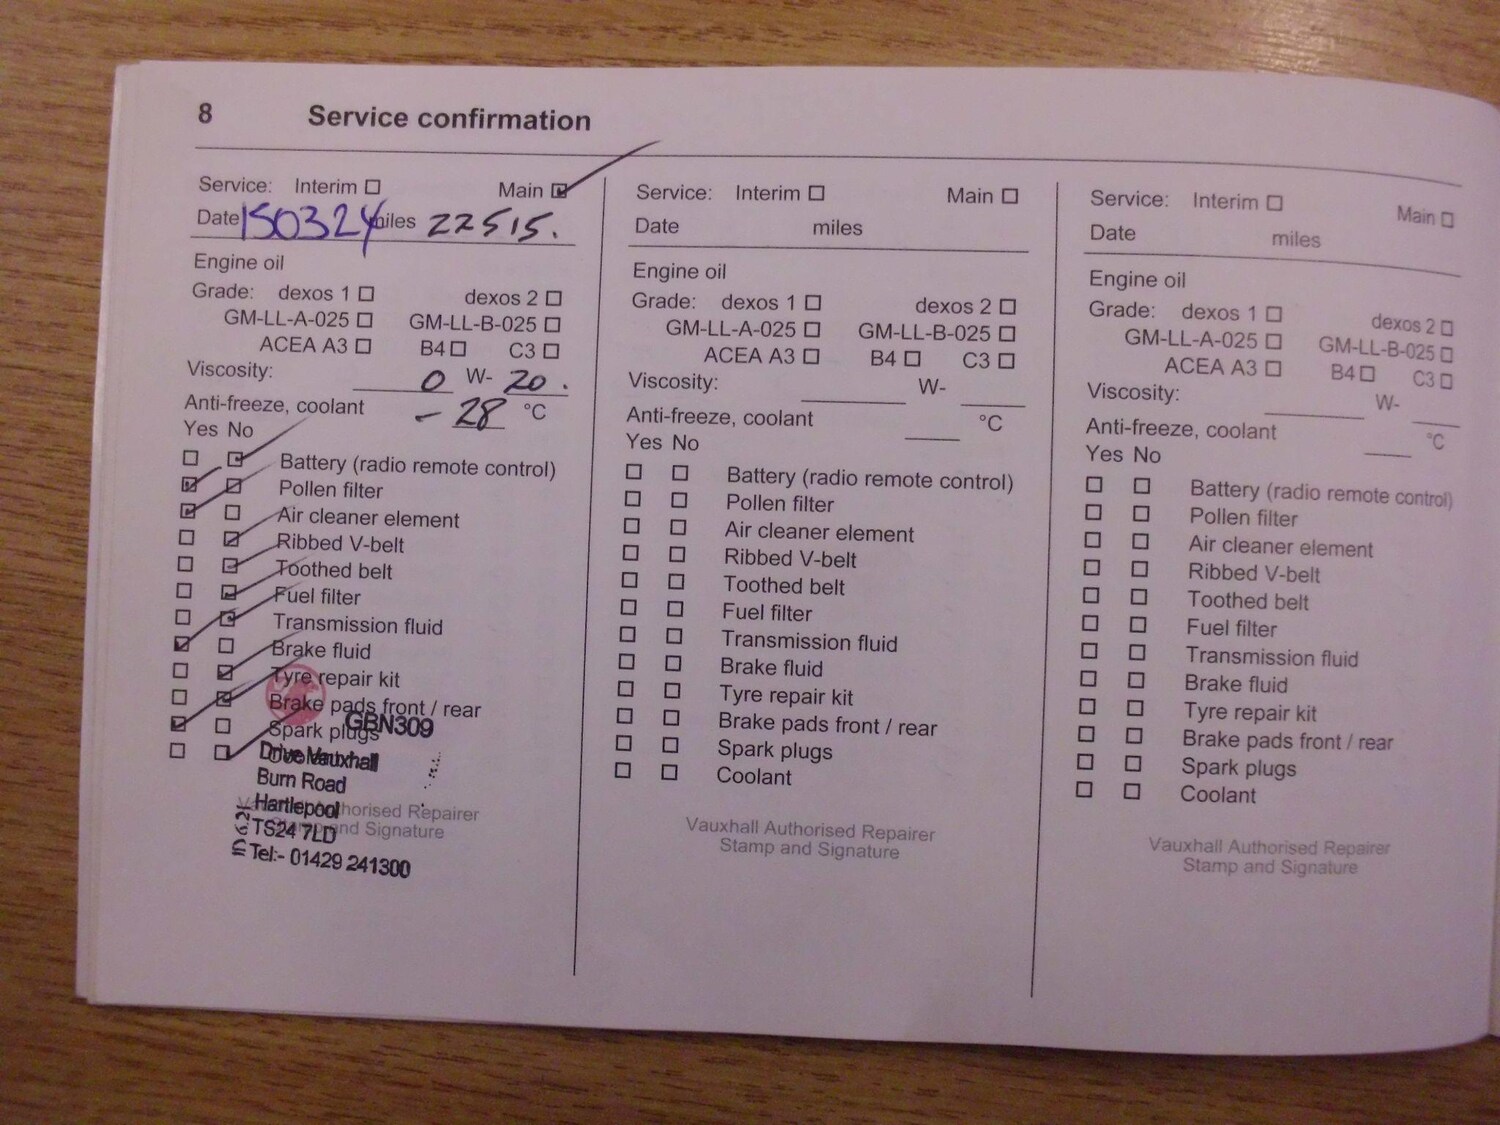 8 Service confirmation
Service: Interim Main
Date 150324 miles 22515.
Engine oil
Grade: dexos 1 dexos 2
GM-LL-A-025 GM-LL-B-025
ACEA A3 B4 C3
Viscosity: 0 W- 20.
Anti-freeze, coolant -28 °C
Yes No
Battery (radio remote control)
Pollen filter
Air cleaner element
Ribbed V-belt
Toothed belt
Fuel filter
Transmission fluid
Brake fluid
Tyre repair kit
Brake pads front / rear
Spark plugs
Coolant
GBN309
Drive Vauxhall
Burn Road
Hartlepool
TS24 7LD
Tel:- 01429 241300
Vauxhall Authorised Repairer
Stamp and Signature
Service: Interim Main
Date miles
Engine oil
Grade: dexos 1 dexos 2
GM-LL-A-025 GM-LL-B-025
ACEA A3 B4 C3
Viscosity: W-
Anti-freeze, coolant °C
Yes No
Battery (radio remote control)
Pollen filter
Air cleaner element
Ribbed V-belt
Toothed belt
Fuel filter
Transmission fluid
Brake fluid
Tyre repair kit
Brake pads front / rear
Spark plugs
Coolant
Vauxhall Authorised Repairer
Stamp and Signature
Service: Interim Main
Date miles
Engine oil
Grade: dexos 1 dexos 2
GM-LL-A-025 GM-LL-B-025
ACEA A3 B4 C3
Viscosity: W-
Anti-freeze, coolant °C
Yes No
Battery (radio remote control)
Pollen filter
Air cleaner element
Ribbed V-belt
Toothed belt
Fuel filter
Transmission fluid
Brake fluid
Tyre repair kit
Brake pads front / rear
Spark plugs
Coolant
Vauxhall Authorised Repairer
Stamp and Signature